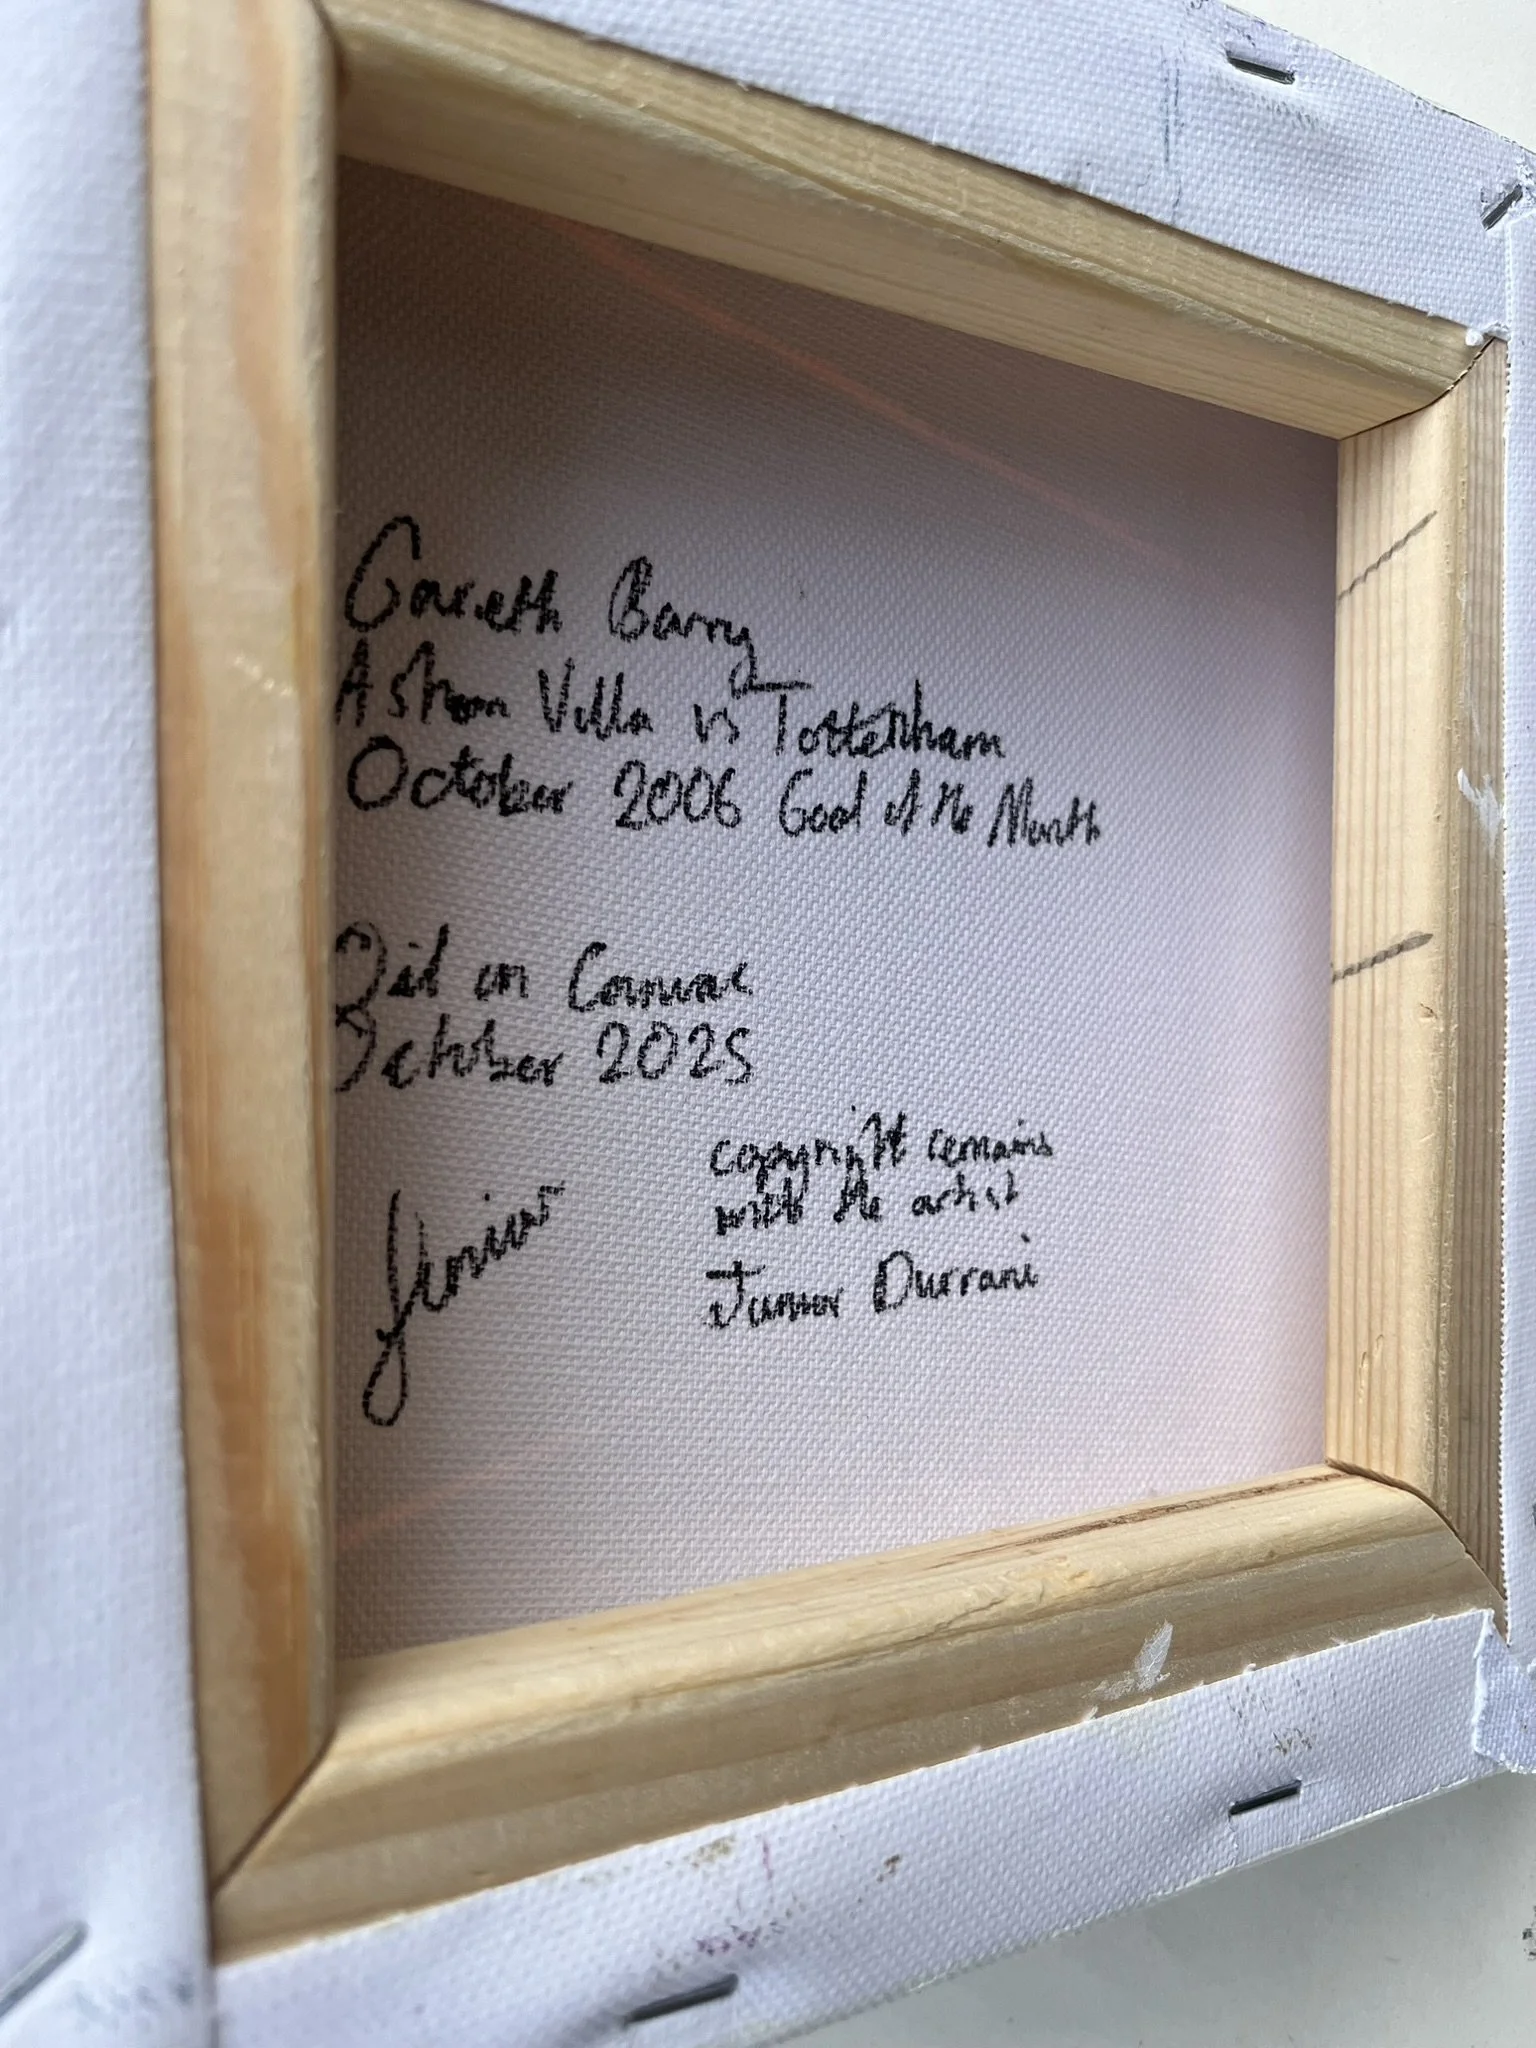 Gareth Barry
Aston Villa vs Tottenham
October 2006 Goal of the Month
Oil on Canvas
October 2025
Junior
copyright remains
with the artist
Junior Durrani